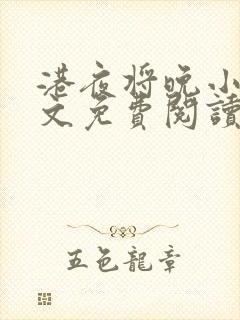 港夜将晚小
文免費閱讀
五色龍章